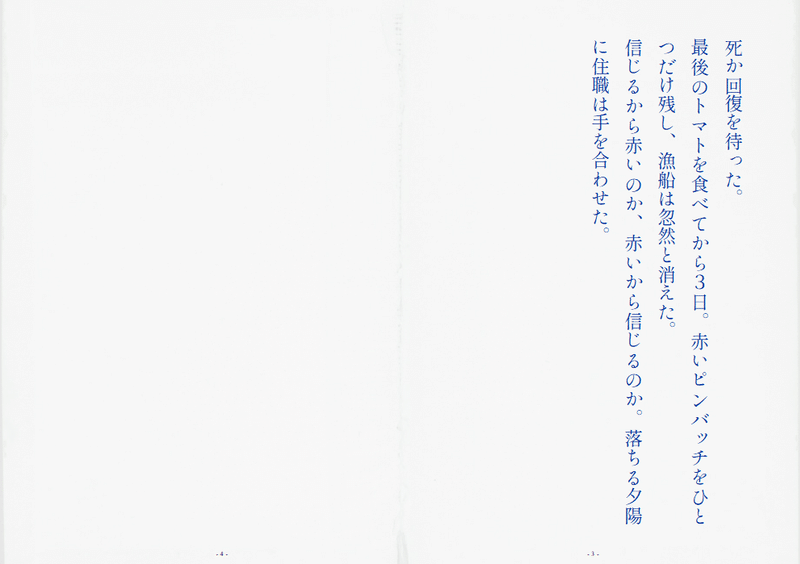 死か回復を待った。
最後のトマトを食べてから３日。赤いピンバッチをひと
つだけ残し、漁船は忽然と消えた。
信じるから赤いのか、赤いから信じるのか。落ちる夕陽
に住職は手を合わせた。
- 3 -
- 4 -